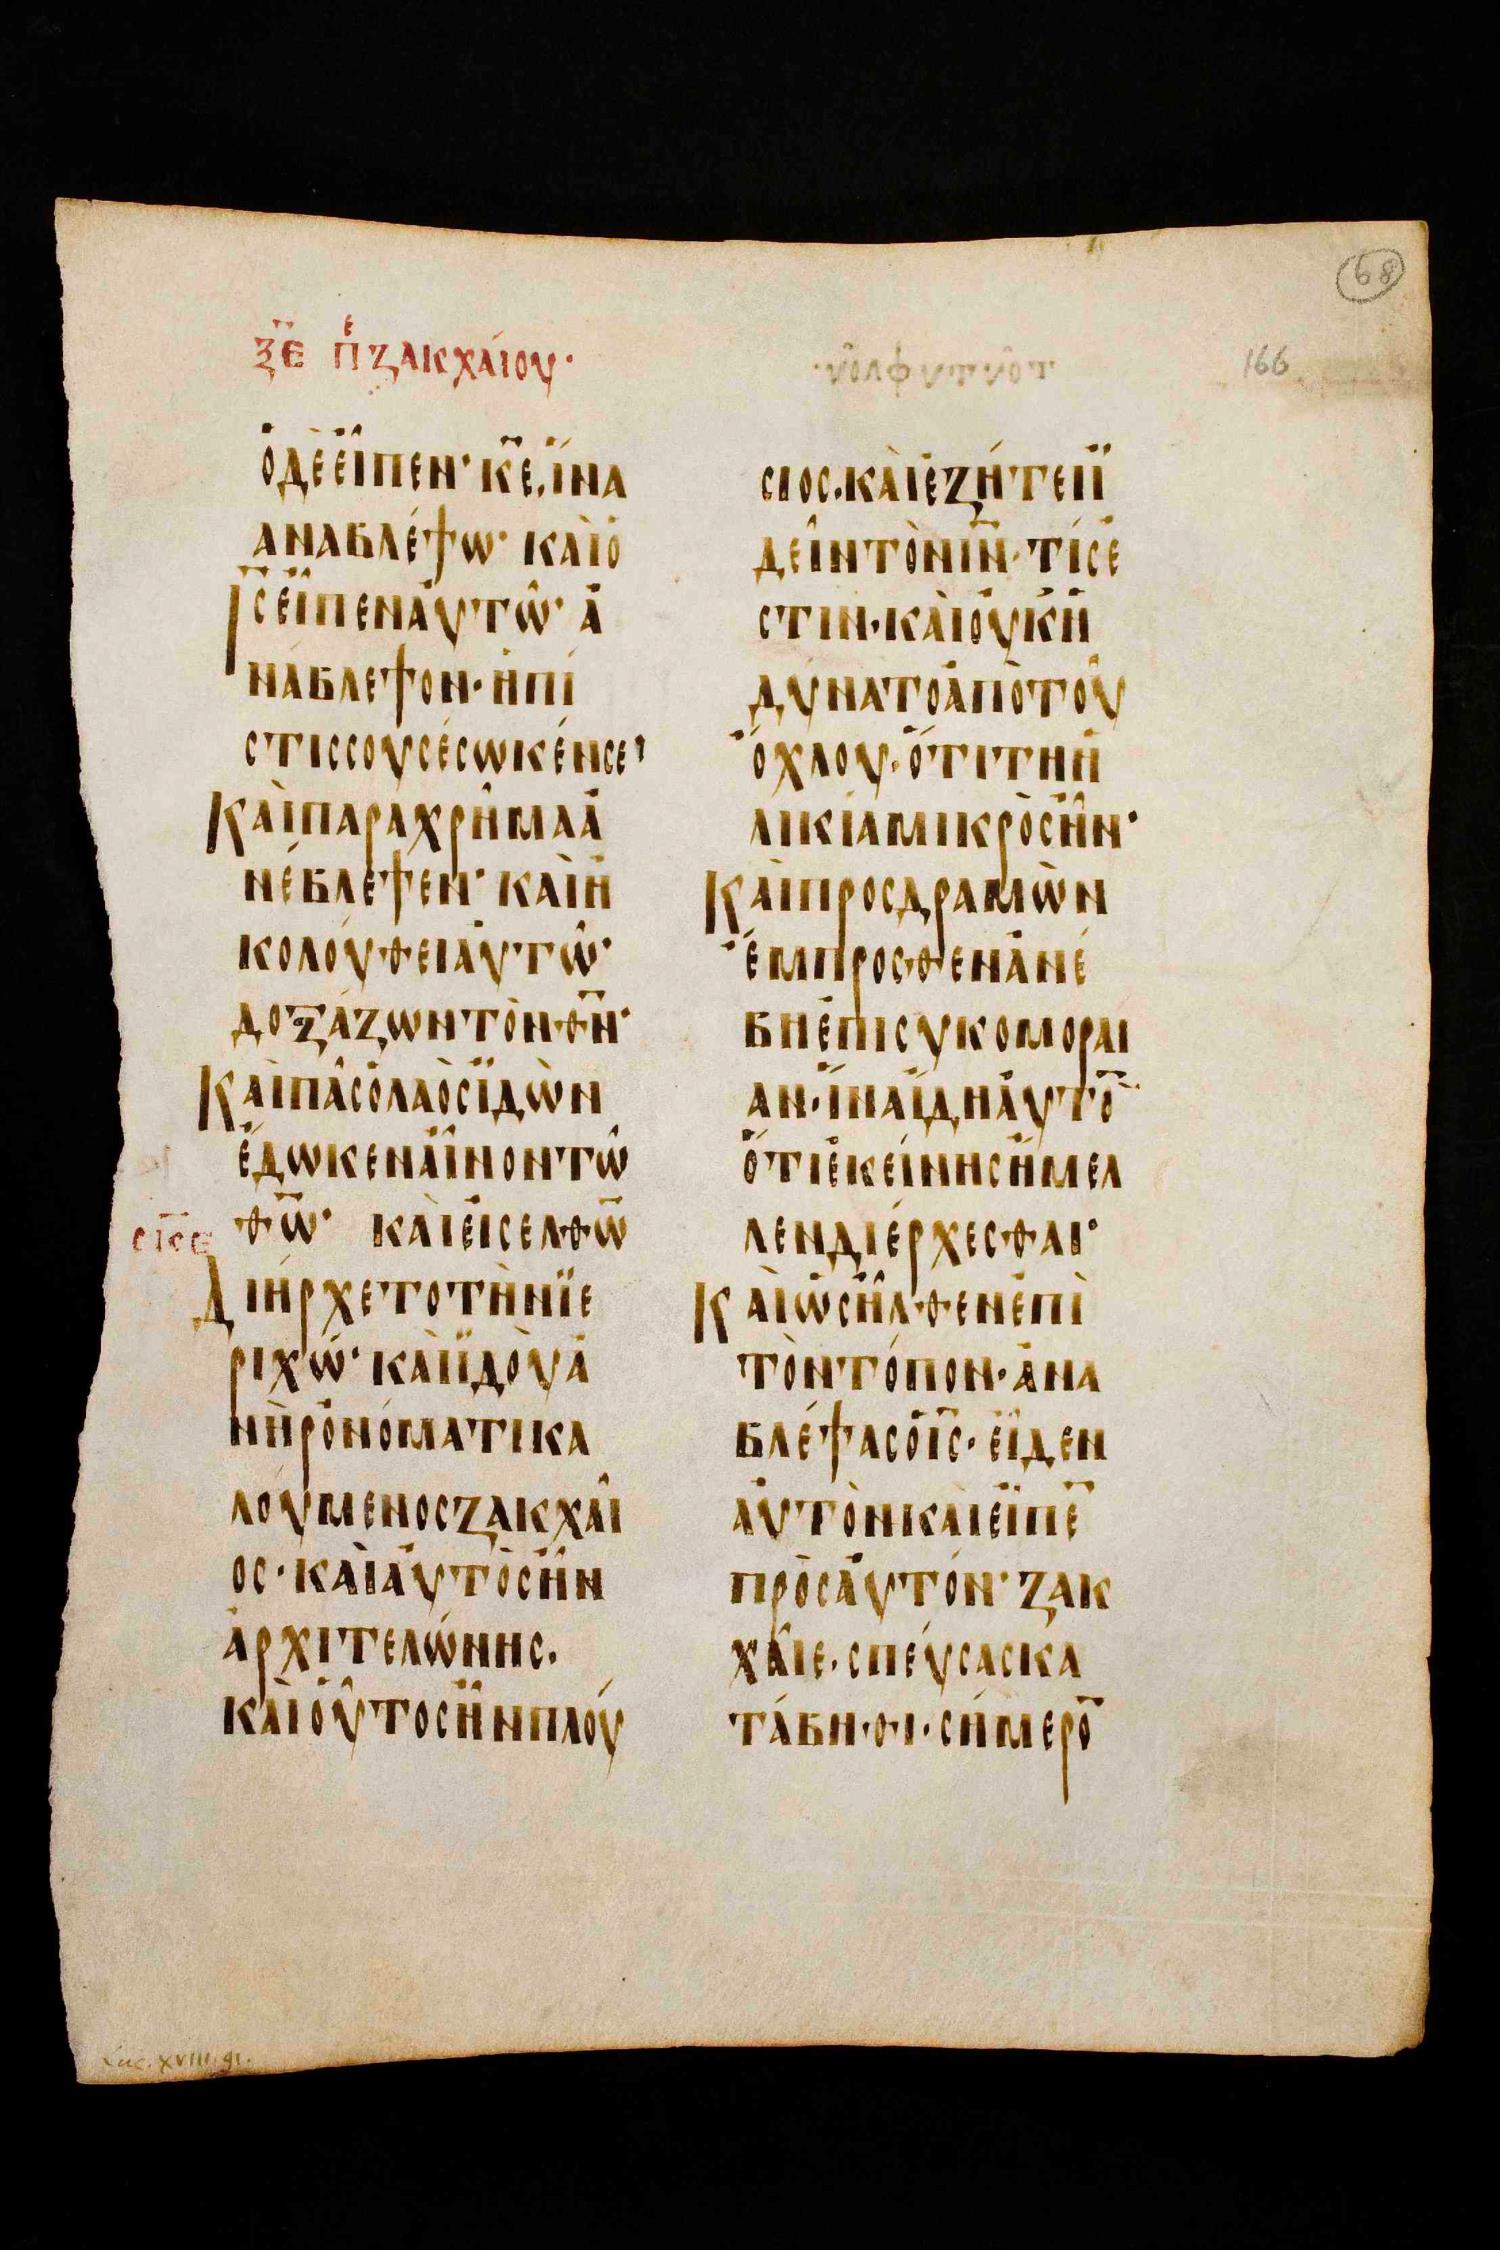 68
166
ξ̅ε̅ πε ζακχάιου·
ὁδὲεἶπεν· κ̅ε̅, ἵνα
αναβλέψω· καὶὁ
ι̅ς̅εἶπεναὐτῶ· ἀ
νάβλεψον· ἡπί
στισσουσέσωκένσε·
Καὶπαραχρῆμαἀ
νέβλεψεν· καὶἠ
κολόυθειἀυτῶ·
δοξάζωντὸνθ̅ν̅·
Καὶπᾶσὁλαὸσἰδὼν
ἔδωκεναἶνοντῶ
θ̅ω̅· καὶἐισελθω̅
σ̅ι̅σ̅ε
Διήρχετοτὴνϊε
ριχώ· καὶϊδὸυἀ
νὴρὀνόματικα
λουμενοσζακχᾶι
ος· καὶἀυτὸσἦν
ἀρχιτελώνης.
καὶὁῦτοσἦνπλού
σιος. κὰιἐζήτεϊ
δεῖντὸνι̅ν̅· τίσἐ
στιν· κὰιὀυκἠ
δυνατοἀπὸτοῦ
ὄχλου· ὅτιτηἡ
λικίαμικρὸσἦν·
Κὰιπροσδραμὼν
ἔμπροσθενἀνέ
βηἐπισυκομοραι
αν· ἵναἴδηἀυτο̅
ὅτιἐκείνησἤμελ
λενδιέρχεσθαι·
Κὰιὡσἦλθενἐπὶ
τὸντόπον· ἀνα
βλέψασὁι̅ς̅· εἶδεν
ἀυτὸνκαὶεἶπε̅
πρὸσἀυτόν· ζακ
χᾶιε· σπέυσασκα
τάβηθι· σήμερο̅
Luc. XVIII. 41.